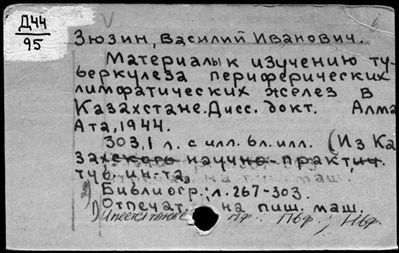 Д44
95
Зюзин, Василий Иванович.
Материалы к изучению ту-
беркулеза периферических
лимфатических желез в
Казахстане. Дисс. докт. Алма
Ата, 1944.
303,1 л. с илл. 6л. илл. (Из Ка
захского научно практич.
туб. ин-та)
Библиогр: л. 267-303.
Отпечат. на пиш. маш.